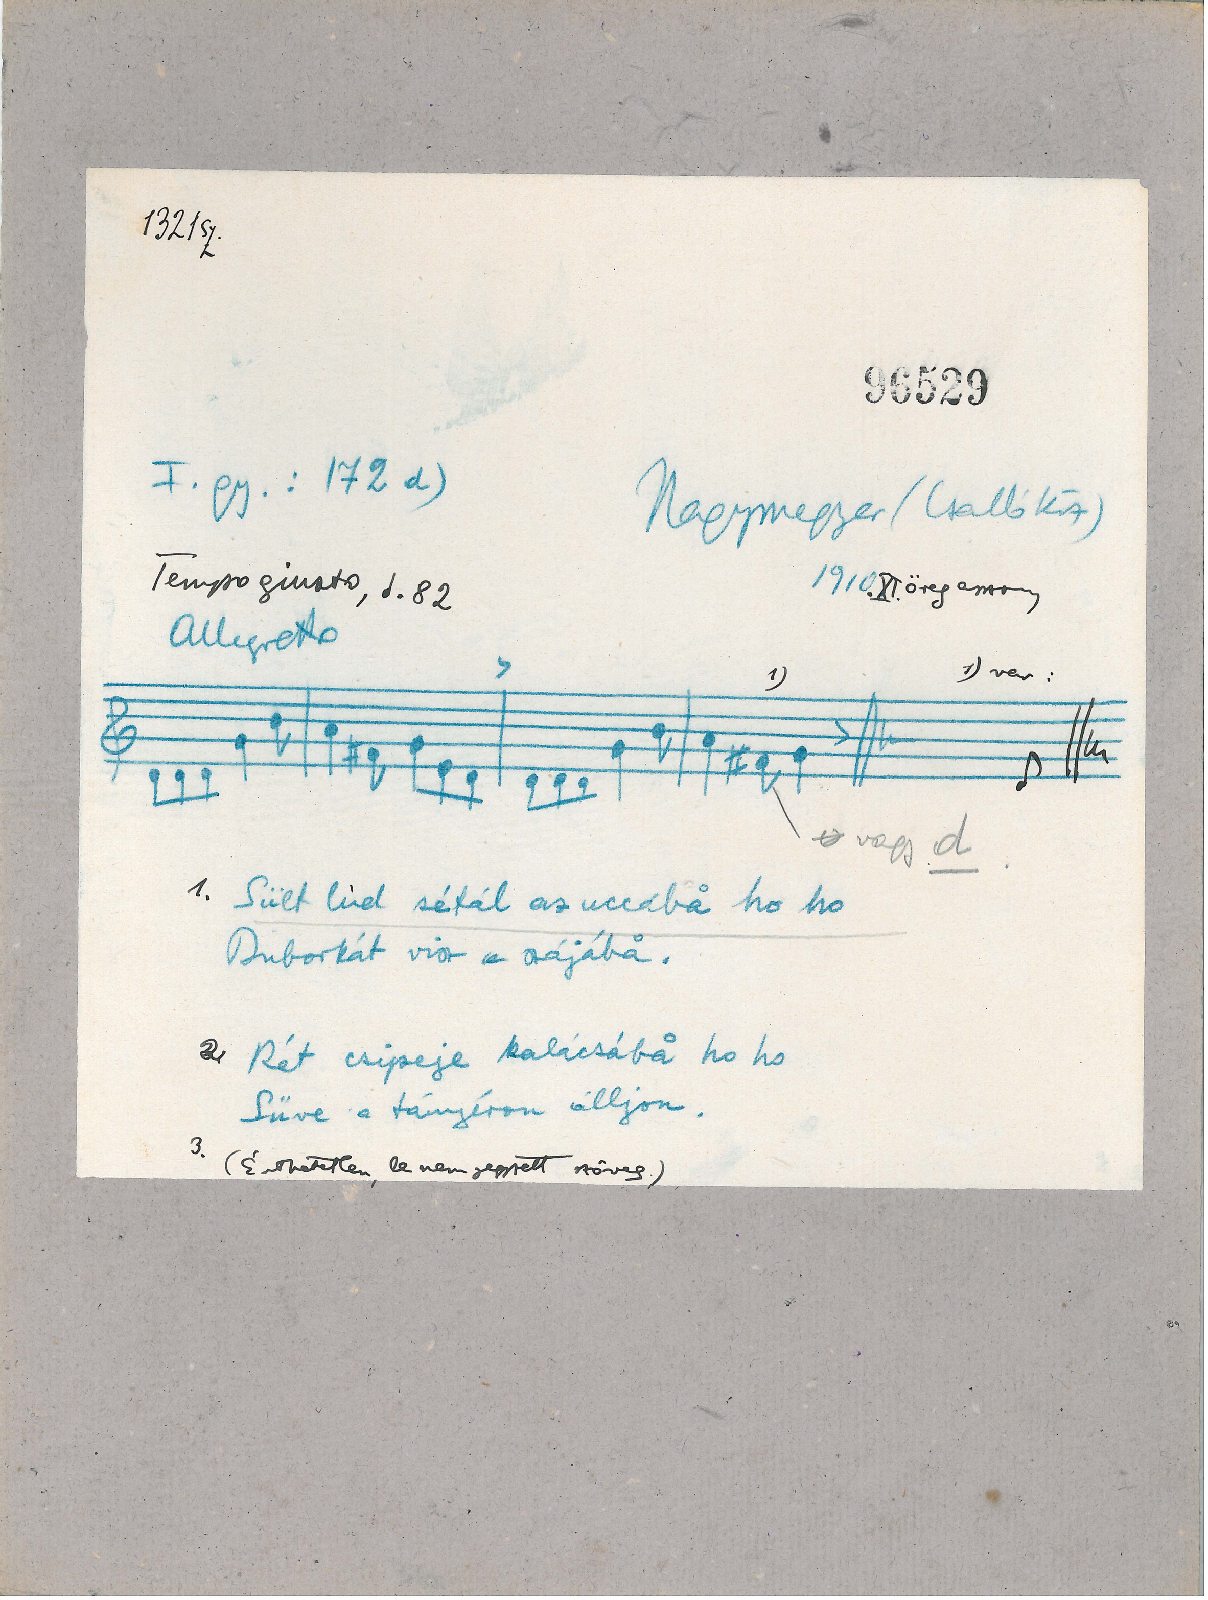 1321 sz.
96529
I. gy. : 172 d)
Nagymegyer (Csallóköz)
Tempo giusto, ♩. 82
1910. XI. öregasszony
Allegretto
1)
1) var :
vagy d
1. Sült lúd sétál az uccábå ho ho
Buborkát visz a szájábå.
2. Rét csipeje kalácsábå ho ho
Süve a tányéron álljon.
3. (Érthetetlen, le nem jegyzett szöveg.)